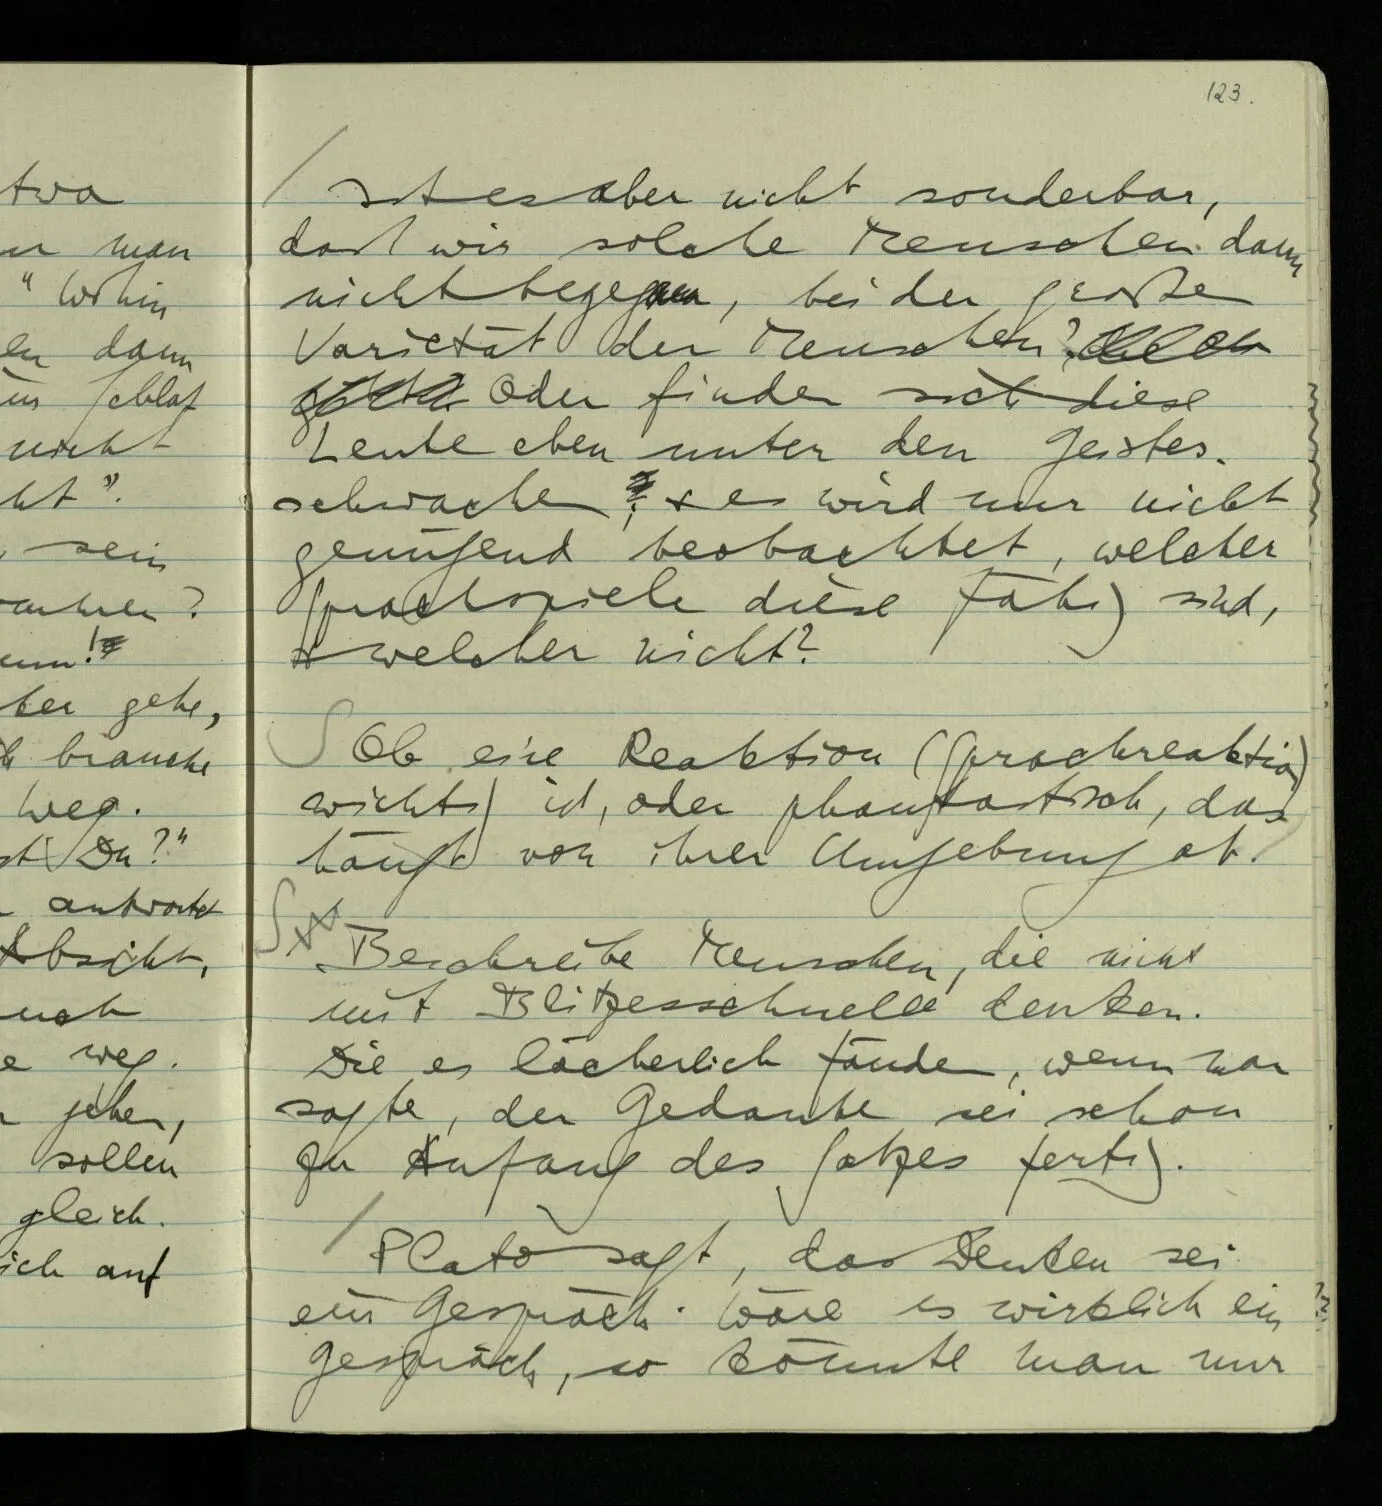 123.
twa
man
" Wohin
en dann
im Schlaf
nicht
cht".
sein
?
!
ber gehe,
h brauche
Weg.
st Du?"
antwortet
Absicht,
auch
e weg.
gehen,
sollen
gleich.
ich auf
/ Ist es aber nicht sonderbar,
daß wir solche Menschen dann
nicht begegnen, bei der große
Varietät der Menschen?
Oder finden sich diese
Leute eben unter den Geistes-
schwachen; & es wird nur nicht
genügend beobachtet, welcher
Sprachspiele diese fähig sind,
& welcher nicht?
S Ob eine Reaktion (Sprachreaktion)
wichtig ist, oder phantastisch, das
hängt von ihrer Umgebung ab.
S Beschreibe Menschen, die nicht
mit Blitzesschnelle denken.
Die es lächerlich fänden, wenn man
sagte, der Gedanke sei schon
zu Anfang des Satzes fertig.
/ Plato sagt, das Denken sei
ein Gespräch. Wäre es wirklich ein
Gespräch, so könnte man nur